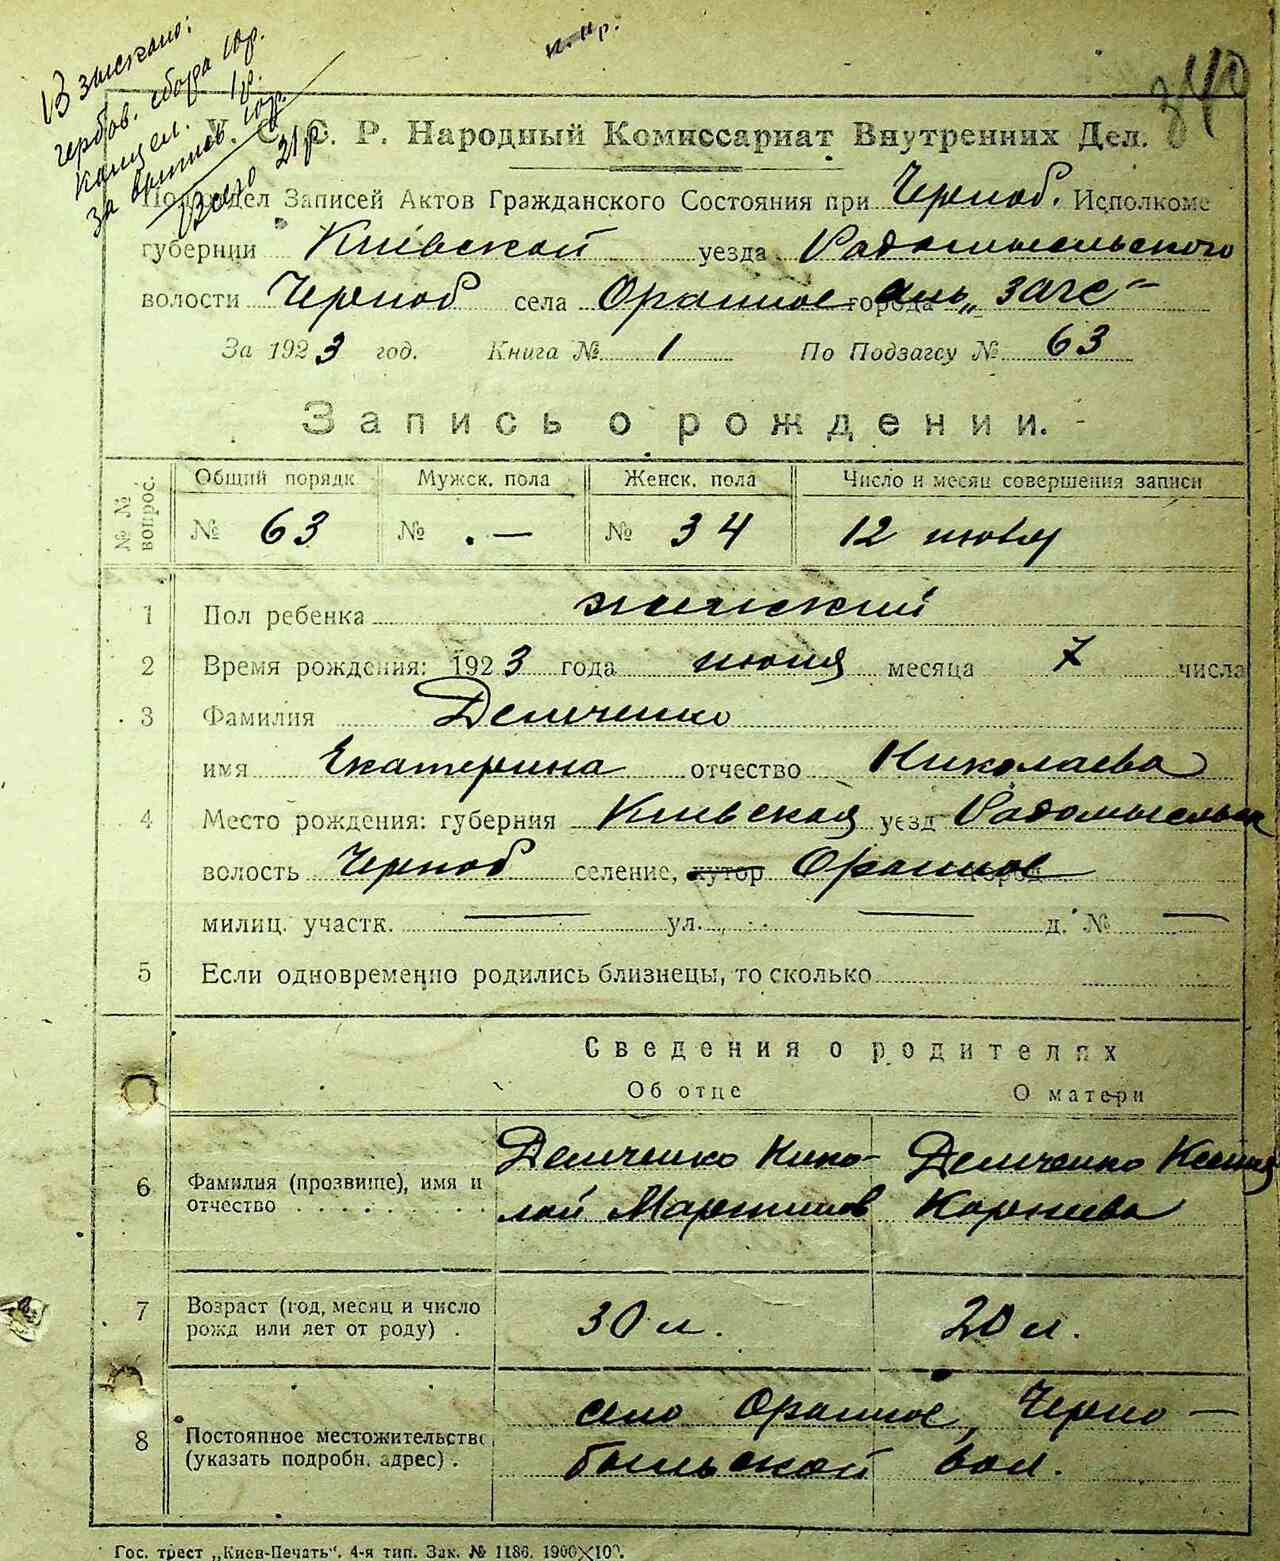 Взыскано:
гербов. сбора 10р.
канцел. 1р.
за 10р.
Всего 21р.
340
У. С. С. Р. Народный Комиссариат Внутренних Дел.
Подотдел Записей Актов Гражданского Состояния при Черноб. Исполкоме
губернии Киевской уезда Радомысльского
волости Черноб села Оранное города
За 1923 год. Книга № 1 По Подзагсу № 63
Запись о рождении.
№ № вопрос. Общий порядк Мужск. пола Женск. пола Число и месяц совершения записи
№ 63 № — № 34 12 июня
1 Пол ребенка женский
2 Время рождения: 1923 года июня месяца 7 числа
3 Фамилия Демченко
имя Екатерина отчество Николаева
4 Место рождения: губерния Киевская уезд Радомысльск
волость Черноб селение, хутор Оранное город
милиц. участк. — ул. — д. № —
5 Если одновременно родились близнецы, то сколько
Сведения о родителях
Об отце О матери
6 Фамилия (прозвище), имя и отчество Демченко Николай Демченко Ксения Корнеева
7 Возраст (год, месяц и число рожд или лет от роду) . 30 л. 20 л.
8 Постоянное местожительство (указать подробн. адрес) . село Оранное, Черно-
быльской вол.
Гос. трест „Киев-Печать". 4-я тип. Зак. № 1186. 1900×100.